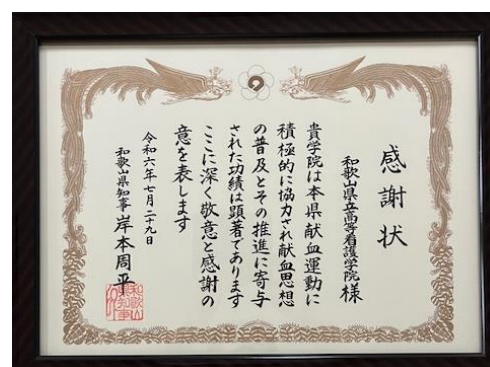 感謝状
和歌山県立高等看護学院様
貴学院は本県献血運動に
積極的に協力され献血思想
の普及とその推進に寄与
された功績は顕著であります
ここに深く敬意と感謝の
意を表します
令和六年七月二十九日
和歌山県知事 岸本周平